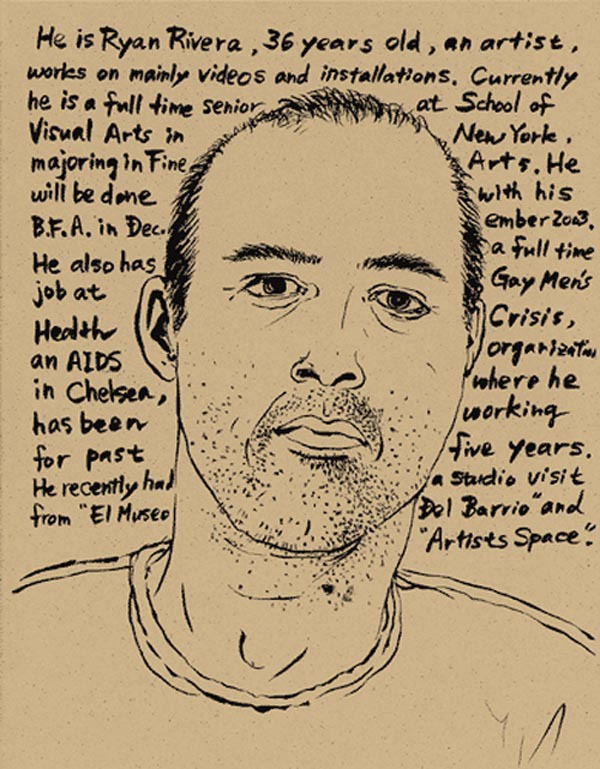 He is Ryan Rivera, 36 years old, an artist,
works on mainly videos and installations. Currently
he is a full time senior at School of
Visual Arts in New York,
majoring in Fine Arts. He
will be done with his
B.F.A. in December 2003.
He also has a full time
job at Gay Men's
Health Crisis,
an AIDS organization
in Chelsea, where he
has been working
for past five years.
He recently had a studio visit
from "El Museo Del Barrio" and
"Artists Space".